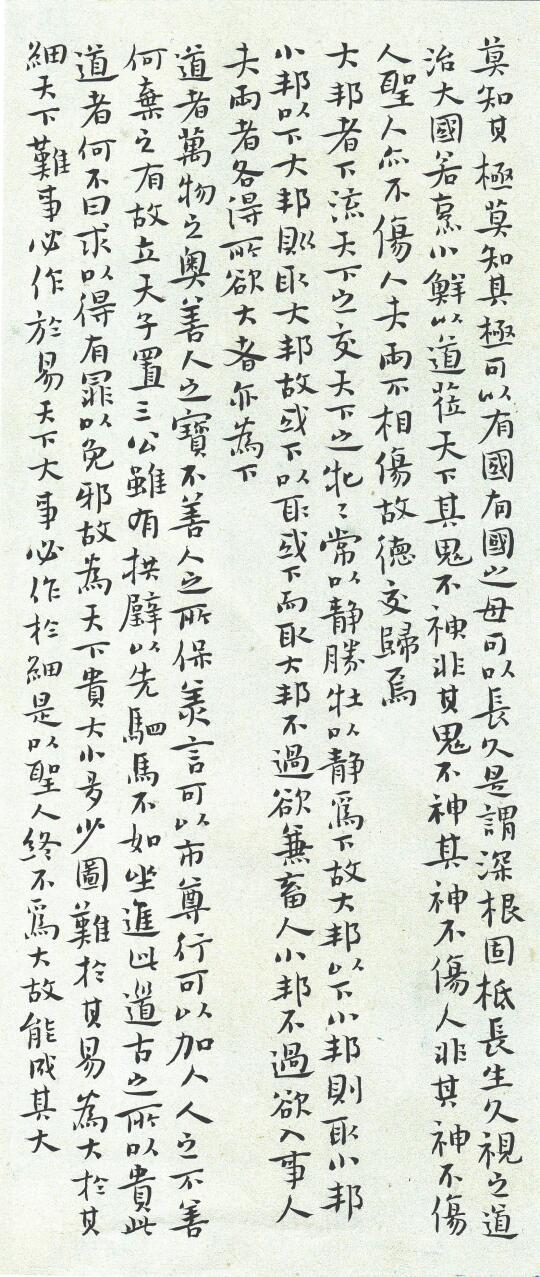 莫知其極莫知其極可以有國有國之母可以長久是謂深根固柢長生久視之道
治大國若烹小鮮以道莅天下其鬼不神非其鬼不神其神不傷人非其神不傷
人聖人亦不傷人夫兩不相傷故德交歸焉
大邦者下流天下之交天下之牝〻常以靜勝牡以靜爲下故大邦以下小邦則取小邦
小邦以下大邦則取大邦故或下以取或下而取大邦不過欲兼畜人小邦不過欲入事人
夫兩者各得所欲大者亦為下
道者萬物之奧善人之寶不善人之所保美言可以市尊行可以加人人之不善
何棄之有故立天子置三公雖有拱璧以先駟馬不如坐進此道古之所以貴此
道者何不曰求以得有罪以免邪故為天下貴大小多少圖難於其易為大於其
細天下難事必作於易天下大事必作於細是以聖人終不爲大故能成其大